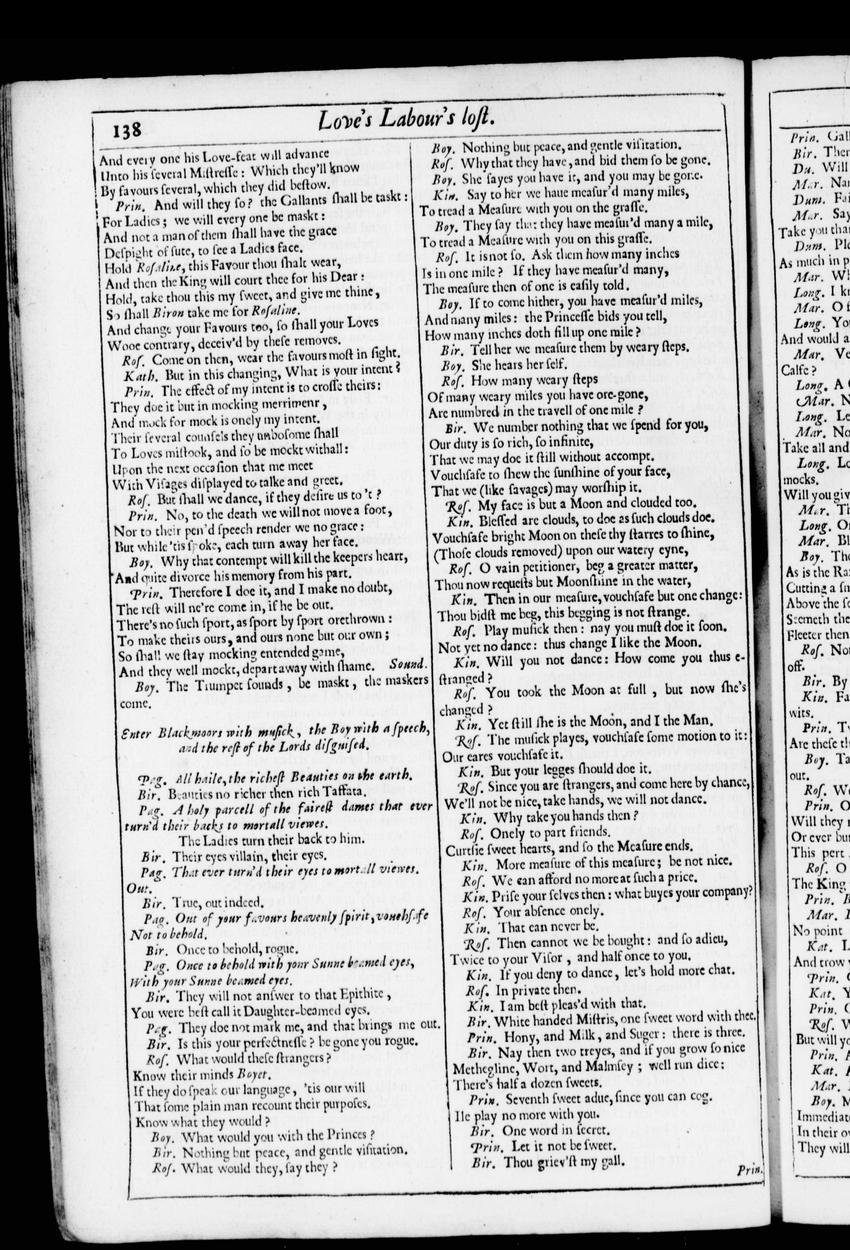 138
Love's Labour's lost.
And every one his Love-feat will advance
Unto his several Mistresse: Which they'll know
By favours several, which they did bestow.
Prin. And will they so? the Gallants shall be taskt:
For Ladies; we will every one be maskt:
And not a man of them shall have the grace
Despight of sute, to see a Ladies face.
Hold Rosaline, this Favour thou shalt wear,
And then the King will court thee for his Dear:
Hold, take thou this my sweet, and give me thine,
So shall Biron take me for Rosaline.
And change your Favours too, so shall your Loves
Wooe contrary, deceiv'd by these removes.
Ros. Come on then, wear the favours most in sight.
Kath. But in this changing, What is your intent?
Prin. The effect of my intent is to crosse theirs:
They doe it but in mocking merriment,
And mock for mock is onely my intent.
Their several counsels they unbosome shall
To Loves mistook, and so be mockt withall:
Upon the next occasion that me meet
With Visages displayed to talke and greet.
Ros. But shall we dance, if they desire us to't?
Prin. No, to the death we will not move a foot,
Nor to their pen'd speech render we no grace:
But while 'tis spoke, each turn away her face.
Boy. Why that contempt will kill the keepers heart,
And quite divorce his memory from his part.
Prin. Therefore I doe it, and I make no doubt,
The rest will ne're come in, if he be out.
There's no such sport, as sport by sport orethrown:
To make theirs ours, and ours none but our own;
So shall we stay mocking entended game,
And they well mockt, depart away with shame. Sound.
Boy. The Trumpet sounds, be maskt, the maskers
come.
Enter Blackmoors with musick, the Boy with a speech,
and the rest of the Lords disguised.
Pag. All haile, the richest Beauties on the earth.
Bir. Beauties no richer then rich Taffata.
Pag. A holy parcell of the fairest dames that ever
turn'd their backs to mortall viewes.
The Ladies turn their back to him.
Bir. Their eyes villain, their eyes.
Pag. That ever turn'd their eyes to mortall viewes.
Out.
Bir. True, out indeed.
Pag. Out of your favours heavenly spirit, vouchsafe
Not to behold.
Bir. Once to behold, rogue.
Pag. Once to behold with your Sunne beamed eyes,
With your Sunne beamed eyes.
Bir. They will not answer to that Epithite,
You were best call it Daughter-beamed eyes.
Pag. They doe not mark me, and that brings me out.
Bir. Is this your perfectnesse? be gone you rogue.
Ros. What would these strangers?
Know their minds Boyet.
If they do speak our language, 'tis our will
That some plain man recount their purposes.
Know what they would?
Boy. What would you with the Princes?
Bir. Nothing but peace, and gentle visitation.
Ros. What would they, say they?
Boy. Nothing but peace, and gentle visitation.
Ros. Why that they have, and bid them so be gone.
Boy. She sayes you have it, and you may be gone.
Kin. Say to her we haue measur'd many miles,
To tread a Measure with you on the grasse.
Boy. They say that they have measur'd many a mile,
To tread a Measure with you on this grasse.
Ros. It is not so. Ask them how many inches
Is in one mile? If they have measur'd many,
The measure then of one is easily told.
Boy. If to come hither, you have measur'd miles,
And many miles: the Princesse bids you tell,
How many inches doth fill up one mile?
Bir. Tell her we measure them by weary steps.
Boy. She hears her self.
Ros. How many weary steps
Of many weary miles you have ore-gone,
Are numbred in the travell of one mile?
Bir. We number nothing that we spend for you,
Our duty is so rich, so infinite,
That we may doe it still without accompt.
Vouchsafe to shew the sunshine of your face,
That we (like savages) may worship it.
Ros. My face is but a Moon and clouded too.
Kin. Blessed are clouds, to doe as such clouds doe.
Vouchsafe bright Moon on these thy starres to shine,
(Those clouds removed) upon our watery eyne,
Ros. O vain petitioner, beg a greater matter,
Thou now requests but Moonshine in the water,
Kin. Then in our measure, vouchsafe but one change:
Thou bidst me beg, this begging is not strange.
Ros. Play musick then: nay you must doe it soon.
Not yet no dance: thus change I like the Moon.
Kin. Will you not dance: How come you thus e-
stranged?
Ros. You took the Moon at full, but now she's
changed?
Kin. Yet still she is the Moon, and I the Man.
Ros. The musick playes, vouchsafe some motion to it:
Our eares vouchsafe it.
Kin. But your legges should doe it.
Ros. Since you are strangers, and come here by chance,
We'll not be nice, take hands, we will not dance.
Kin. Why take you hands then?
Ros. Onely to part friends.
Curtsie sweet hearts, and so the Measure ends.
Kin. More measure of this measure; be not nice.
Ros. We can afford no more at such a price.
Kin. Prise your selves then: what buyes your company?
Ros. Your absence onely.
Kin. That can never be.
Ros. Then cannot we be bought: and so adieu,
Twice to your Visor, and half once to you.
Kin. If you deny to dance, let's hold more chat.
Ros. In private then.
Kin. I am best pleas'd with that.
Bir. White handed Mistris, one sweet word with thee.
Prin. Hony, and Milk, and Suger: there is three.
Bir. Nay then two treyes, and if you grow so nice
Methegline, Wort, and Malmsey; well run dice:
There's half a dozen sweets.
Prin. Seventh sweet adue, since you can cog.
Ile play no more with you.
Bir. One word in secret.
Prin. Let it not be sweet.
Bir. Thou griev'st my gall.
Prin.
Prin.
Bir.
Du. Will
Mar.
Dum.
Mar. Say
Take you
Dum.
As much in
Mar.
Long. I
Mar. O
Long.
And would a
Mar.
Calfe?
Long. A
Mar.
Long.
Mar.
Take all and
Long.
mocks.
Will you
Mar.
Long.
Mar.
Boy.
As is the
Cutting a
Above the
Seemeth the
Fleeter then
Ros.
off.
Bir. By
Kin.
wits.
Prin.
Are these
Boy.
out.
Ros.
Prin. O
Will they
Or ever
This pert
Ros. O
The King
Prin.
Mar.
No point
Kat.
And trow
Prin.
Kat.
Prin.
Ros.
But will
Prin.
Kat.
Mar.
Boy.
In their
They will